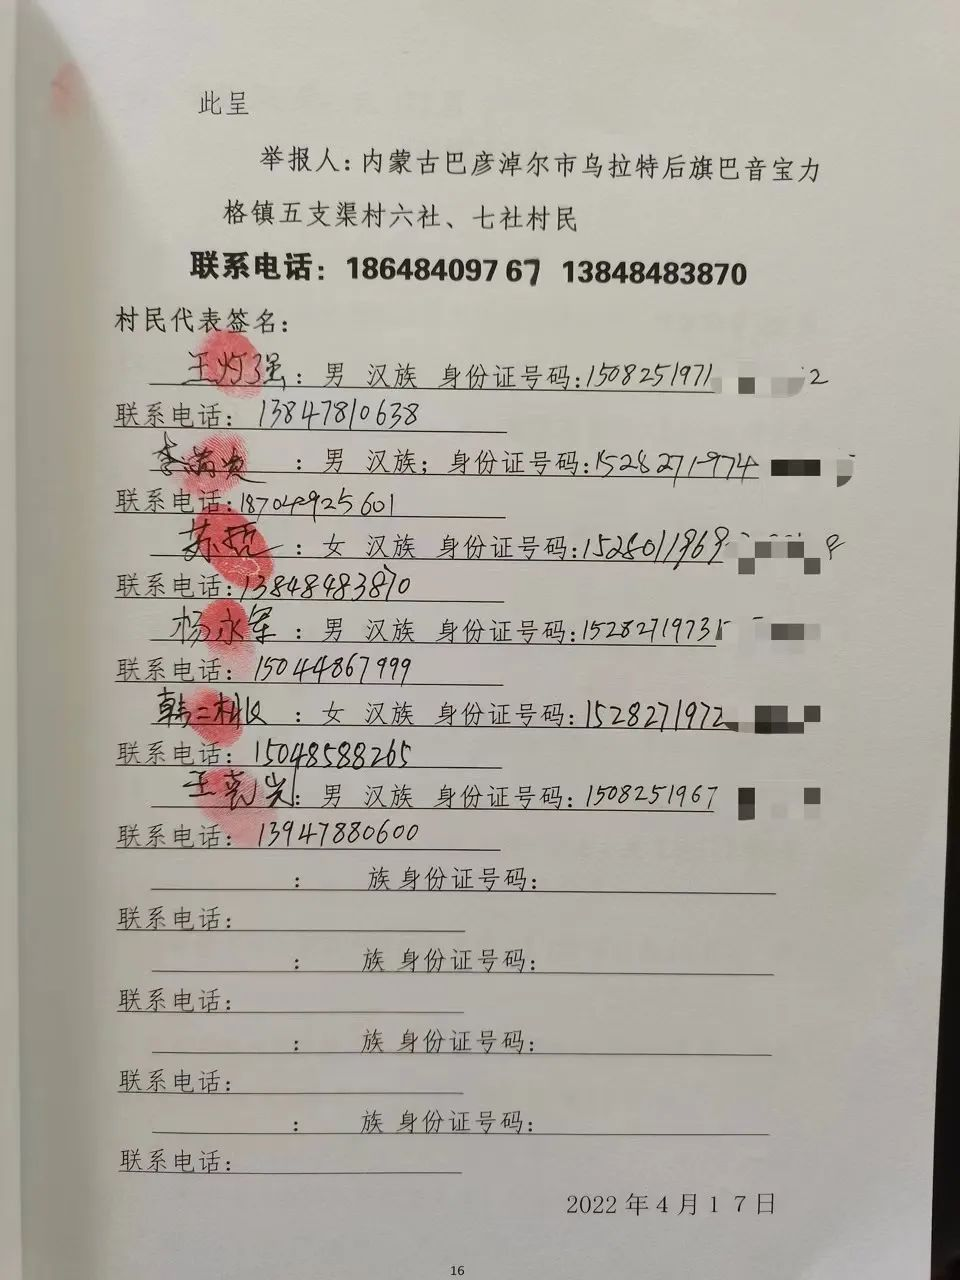 此呈
举报人：内蒙古巴彦淖尔市乌拉特后旗巴音宝力
格镇五支渠村六社、七社村民
联系电话：18648409767 13848483870
村民代表签名：
王灼强：男 汉族 身份证号码：1508251971 2
联系电话：13847810638
李满：男 汉族；身份证号码：1528271974
联系电话：18704925601
苏哲：女 汉族 身份证号码：1528011969 8
联系电话：13848483870
杨永军：男 汉族 身份证号码：1528271973
联系电话：15044867999
韩二：女 汉族 身份证号码：1528271972
联系电话：15048588265
王亮：男 汉族 身份证号码：1508251967
联系电话：13947880600
： 族 身份证号码：
联系电话：
： 族 身份证号码：
联系电话：
： 族 身份证号码：
联系电话：
： 族 身份证号码：
联系电话：
2022年4月17日
16